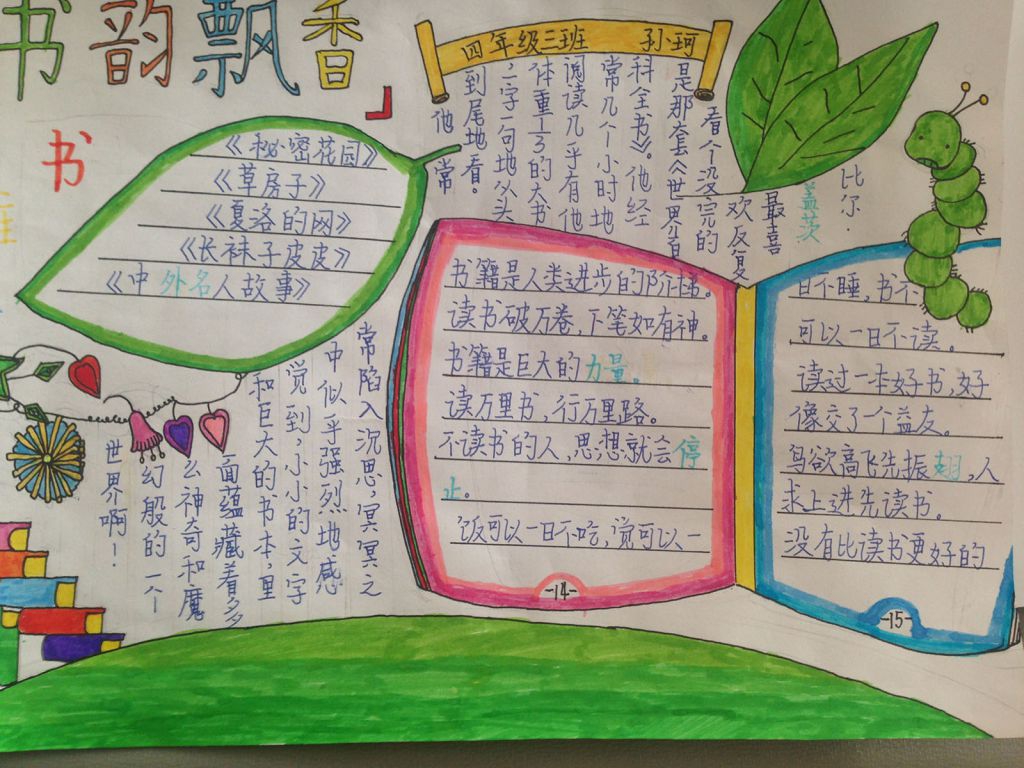 书韵飘香
四年级三班 孙珂
书
《秘密花园》
《草房子》
《夏洛的网》
《长袜子皮皮》
《中外名人故事》
比尔·
盖茨
最喜
欢反复
看个没完的
是那套《世界百
科全书》。他经
常几个小时地
阅读几乎有他
体重1/3的大书
,一字一句地从头
到尾地看。
他常
常陷入沉思,冥冥之
中似乎强烈地感
觉到,小小的文字
和巨大的书本,里
面蕴藏着多
么神奇和魔
幻般的一个
世界啊!
书籍是人类进步的阶梯。
读书破万卷,下笔如有神。
书籍是巨大的力量。
读万里书,行万里路。
不读书的人,思想就会停
止。
饭可以一日不吃,觉可以一
-14-
日不睡,书不
可以一日不读。
读过一本好书,好
像交了一个益友。
鸟欲高飞先振翅,人
求上进先读书。
没有比读书更好的
-15-